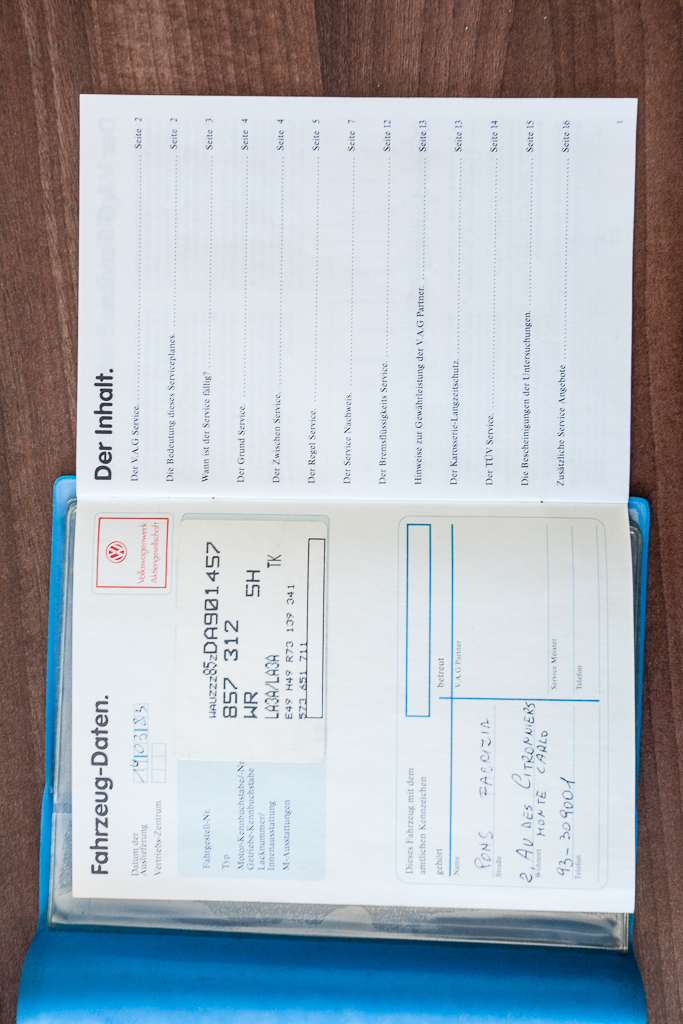 Fahrzeug-Daten.
Volkswagenwerk
Aktiengesellschaft
Datum der
Auslieferung
14 03 83
Vertriebs-Zentrum
Fahrgestell-Nr.
Typ
Motor-Kennbuchstabe/-Nr
Getriebe-Kennbuchstabe
Lacknummer/
Innenausstattung
M-Ausstattungen
WAUZZZ85ZDA901457
857 312
WR 5H
LA3A/LA3A TK
E49 H49 R73 139 341
573 651 711
Dieses Fahrzeug mit dem
amtlichen Kennzeichen
gehört
betreut
Name
PONS FABRIZIA
Straße
2, AV DES CITRONNIERS
Wohnort
MONTE CARLO
93-309001
Telefon
V.A.G Partner
Service Meister
Telefon
Der Inhalt.
Der V.A.G Service. Seite 2
Die Bedeutung dieses Serviceplanes. Seite 2
Wann ist der Service fällig? Seite 3
Der Grund Service. Seite 4
Der Zwischen Service. Seite 4
Der Regel Service. Seite 5
Der Service Nachweis. Seite 7
Der Bremsflüssigkeits Service. Seite 12
Hinweise zur Gewährleistung der V.A.G Partner. Seite 13
Der Karosserie-Langzeitschutz. Seite 13
Der TÜV Service. Seite 14
Die Bescheinigungen der Untersuchungen. Seite 15
Zusätzliche Service Angebote Seite 16
1